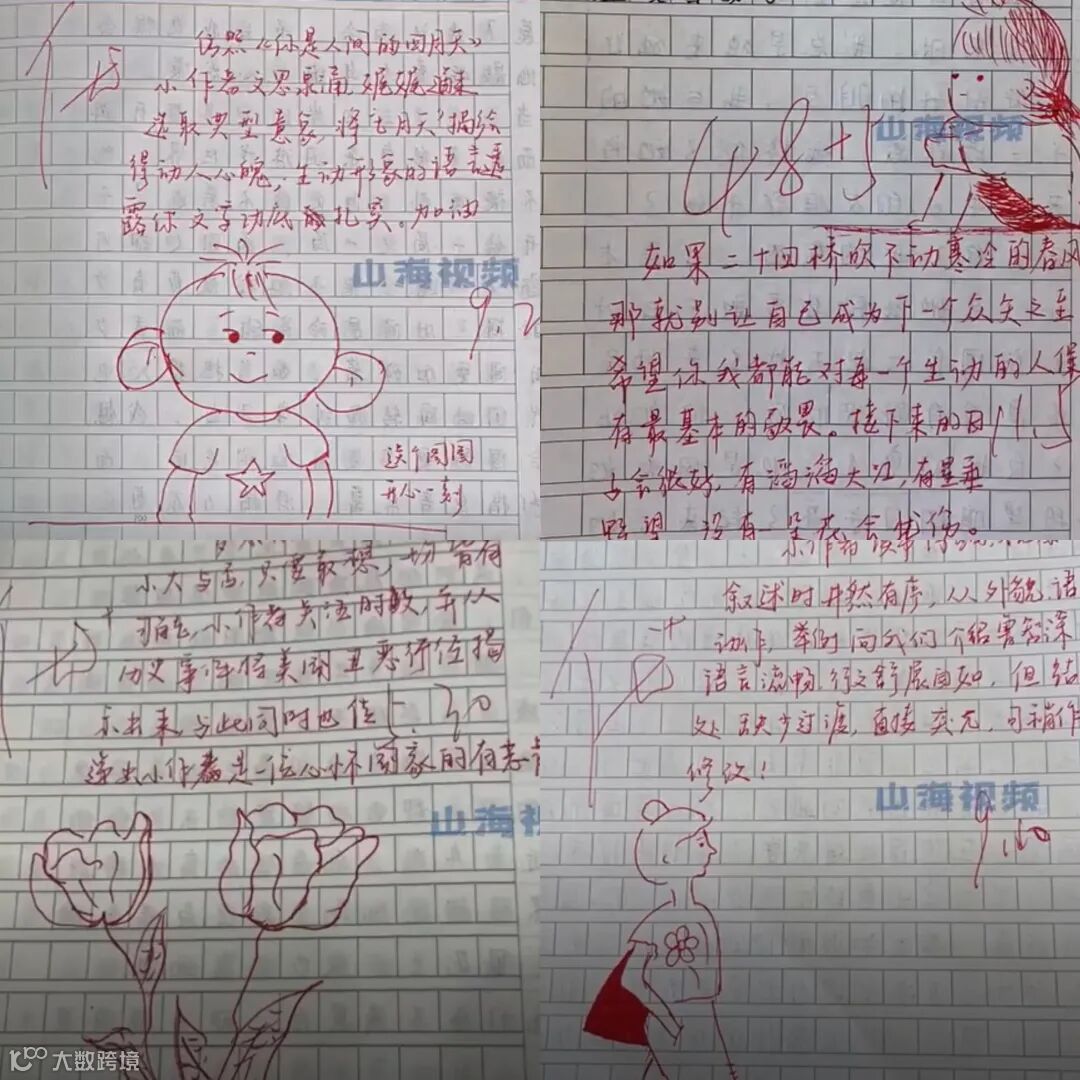 仿照《你是人间的四月天》
小作者文思泉涌,娓娓道来
选取典型意象,将"七月天"描绘
得动人心魄,生动形象的语言透
露你文字功底的扎实。加油
山海视频
9.2
这个圆圆
开心一刻
48+5
山海视频
如果二十四桥吹不动寒冷的春风
那就别让自己成为下一个众矢之至
希望你我都能对每一个生动的人保
有最基本的敬畏。接下来的日
子会很好,有滔滔大江,有星垂
野望,没有一朵花会
11.5
小大与否,只要敢想,一切皆有
可能,小作者关注时政,并从
历史事件将美国丑恶行径揭
示出来,与此同时也传
递出小作者是一位心怀国家的有志青
5.30
山海视频
叙述时井然有序,从外貌、语
动作,举例向我们介绍
语言流畅,行文舒展自如,但结
处缺少过渡,直接突兀,可稍作
修改!
山海视频
9.10
大数跨境